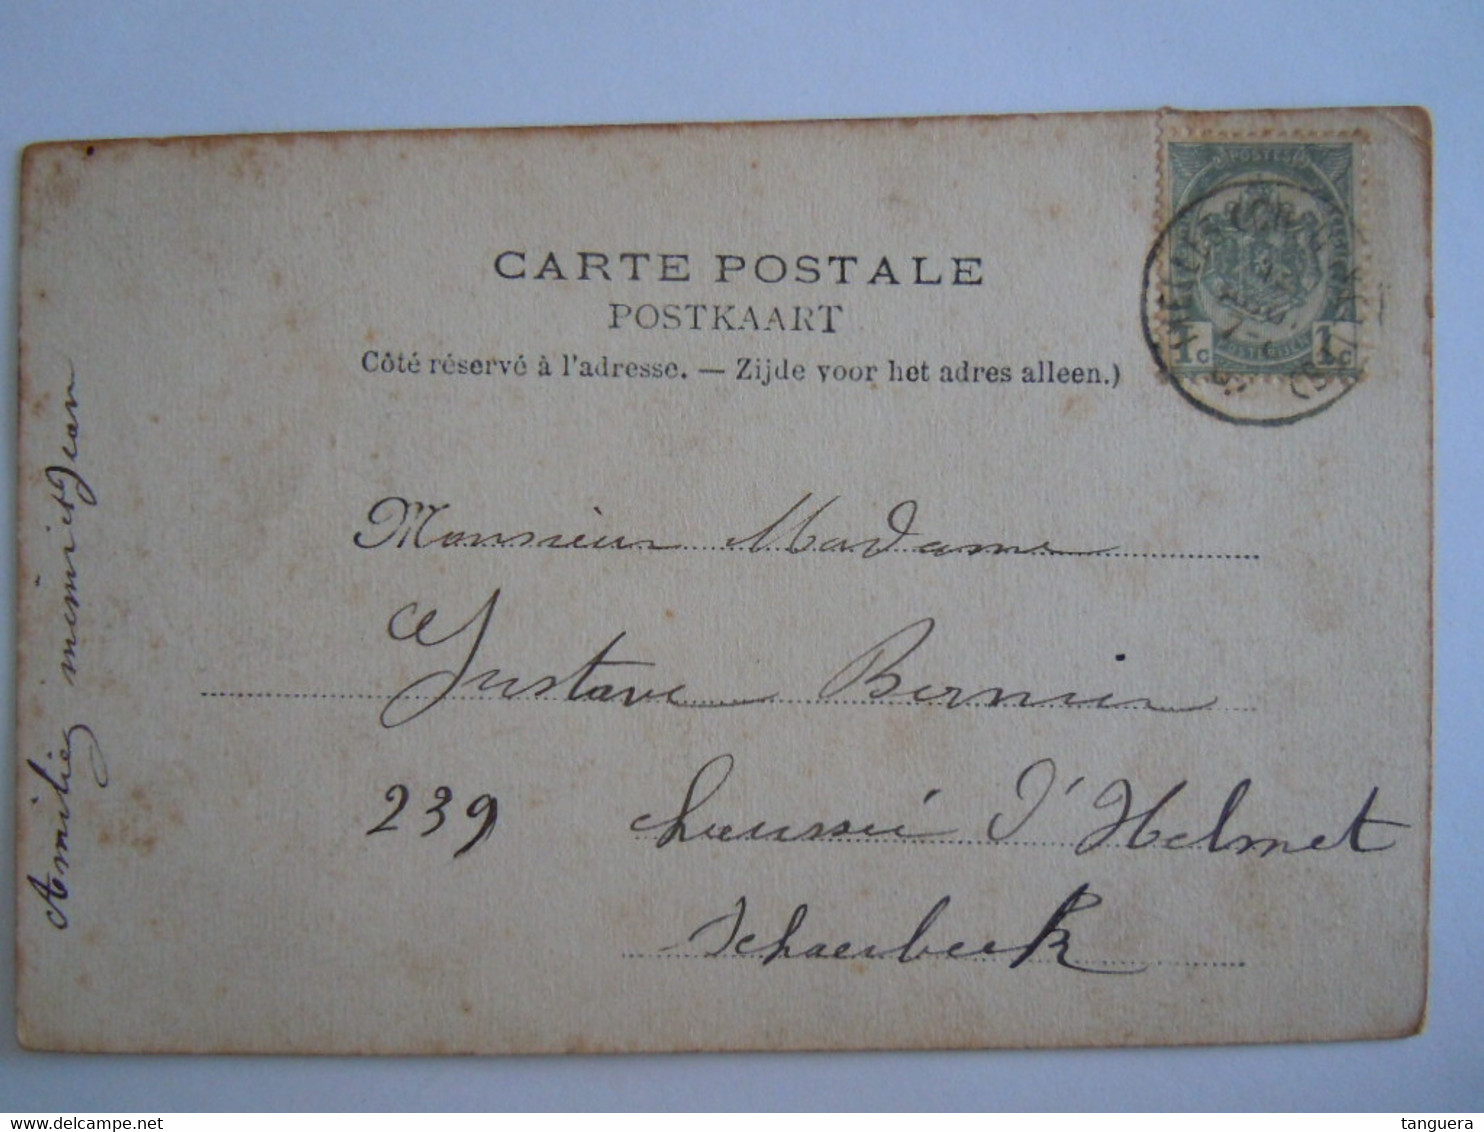 CARTE POSTALE
POSTKAART
Côté réservé à l'adresse. — Zijde voor het adres alleen.)
POSTES
1c 1c
Monsieur Madame
Gustave Bernier
239 chaussée d'Helmet
Schaerbeek
Amilie mimi et Jean
tanguera